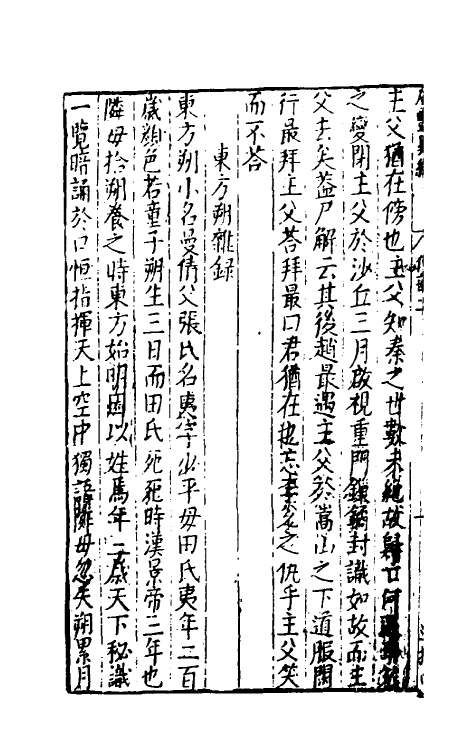 主父猶在傍也主父知秦之世數未絶故歸
之變閉主父於沙丘三月啟視重門鎖鑰封識如故而主
父去矣蓋尸解云其後趙最遇主父於嵩山之下道服閑
行最拜主父荅拜最曰君猶在也忘李兌之仇乎主父笑
而不荅
東方朔雜録
東方朔小名曼倩父張氏名夷字少平母田氏夷年二百
歲顔色若童子朔生三日而田氏死死時漢景帝三年也
隣母拾朔養之時東方始明因以姓焉年三歲天下秘識
一覽暗誦於口恒指揮天上空中獨語隣母忽失朔累月